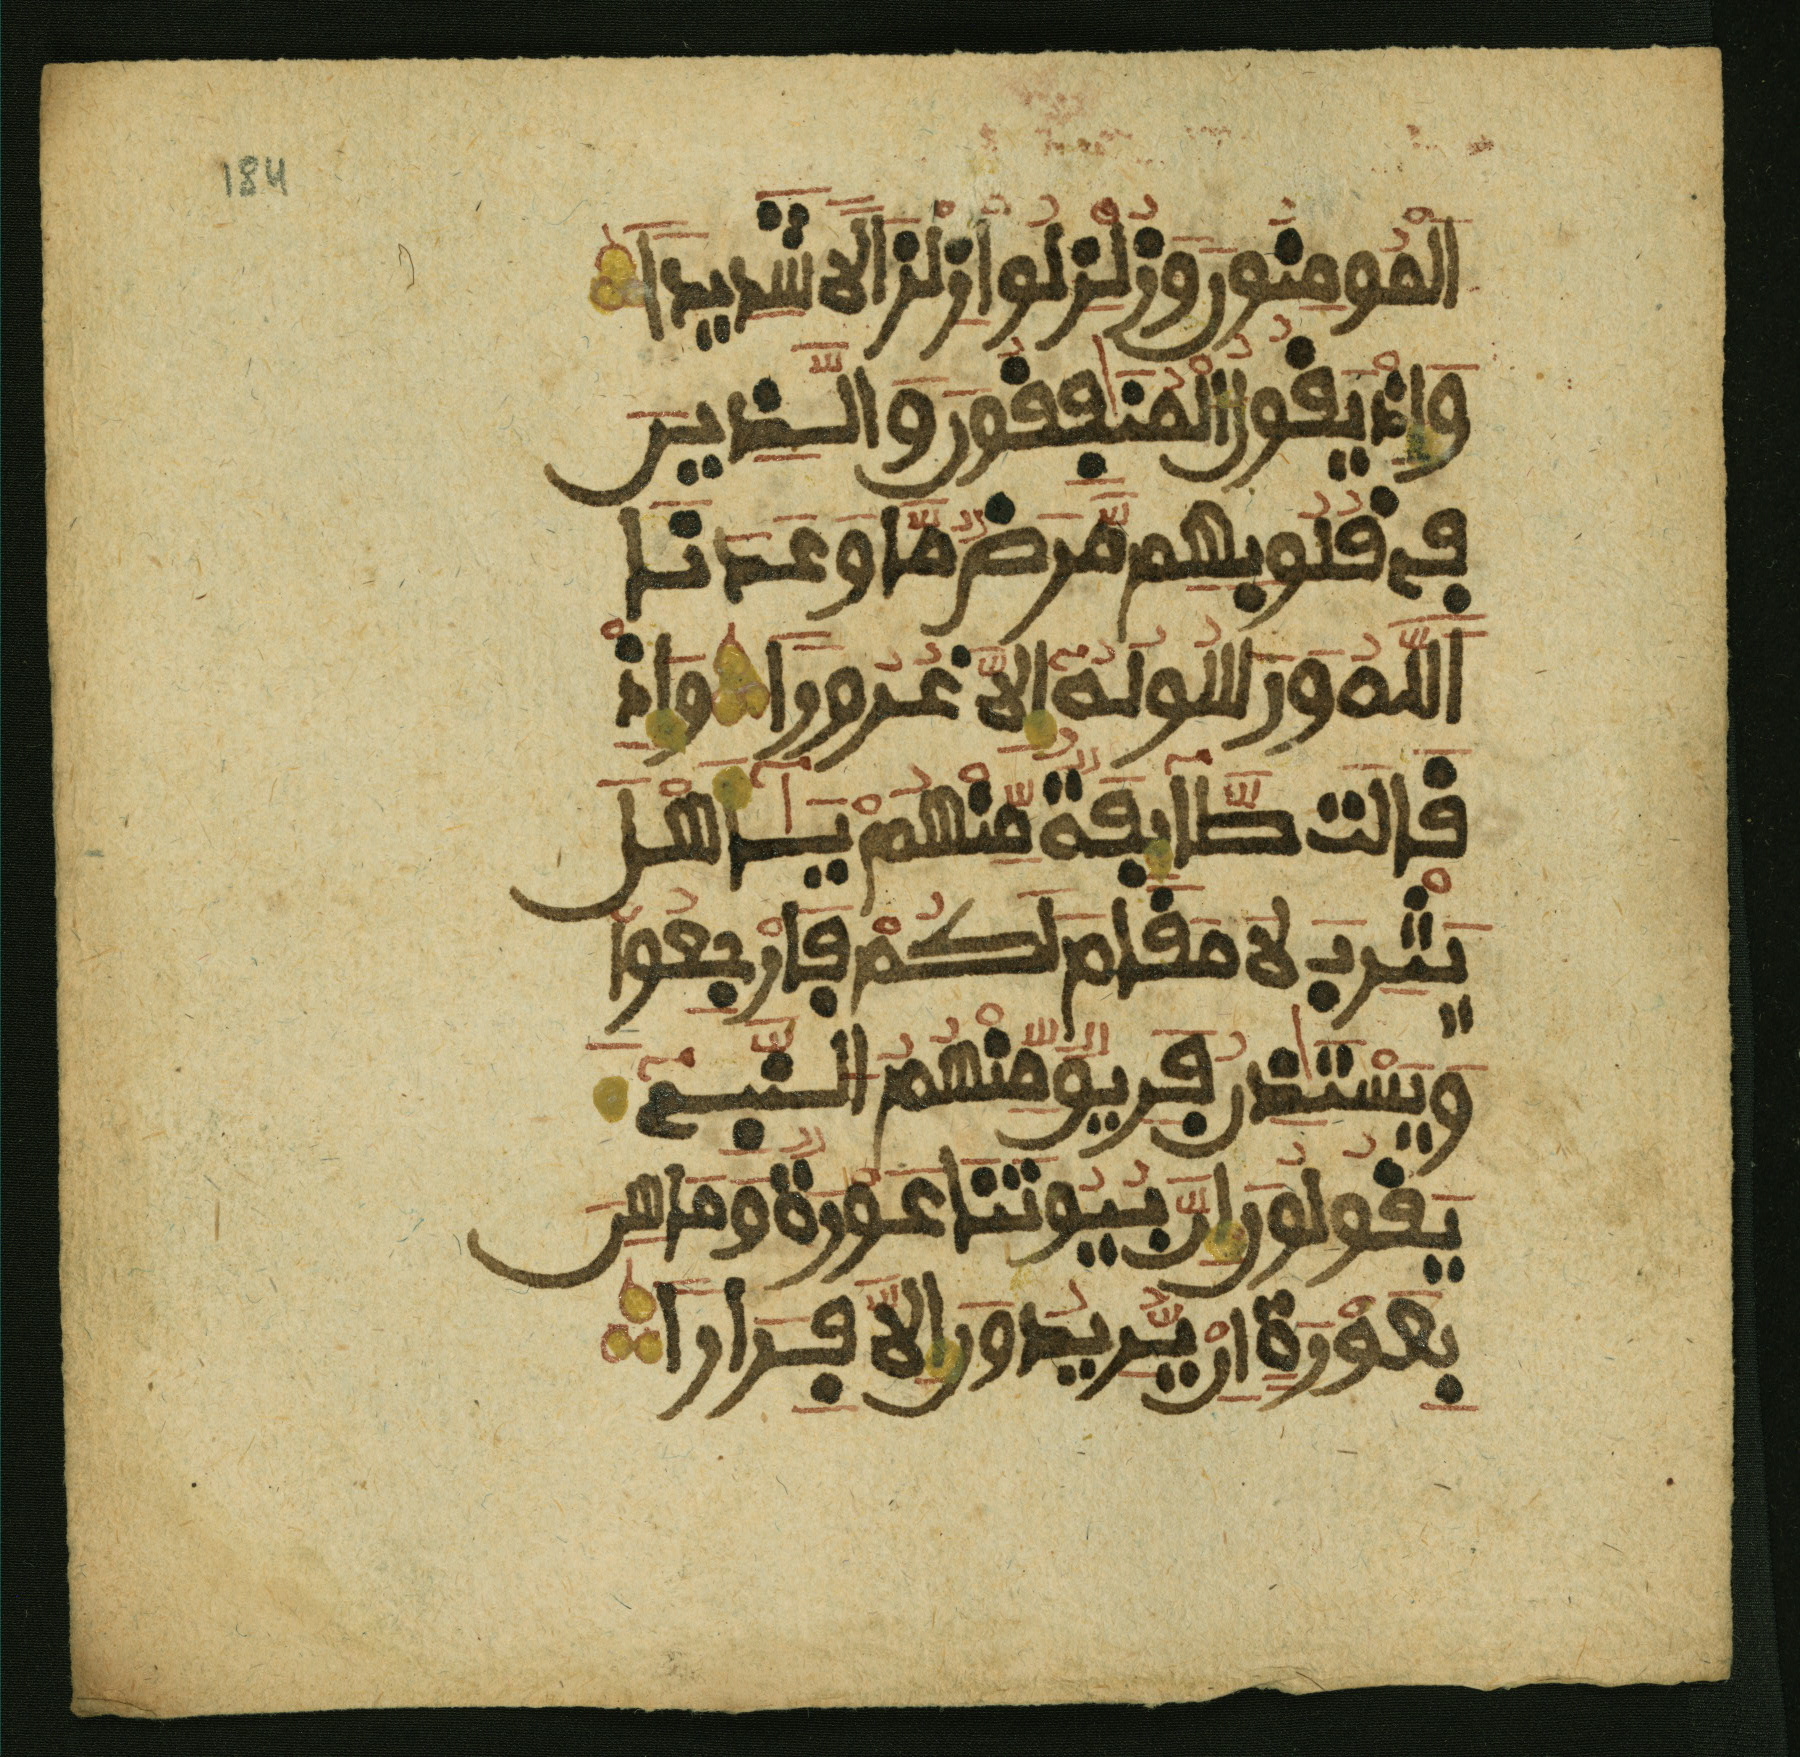 184
الْمُومِنُونَ وَزُلْزِلُوا زِلْزَالًا شَدِيدًا
وَإِذْ يَقُولُ الْمُنَٰفِقُونَ وَالَّذِينَ
فِي قُلُوبِهِم مَّرَضٌ مَّا وَعَدَنَا
اللَّهُ وَرَسُولُهُ إِلَّا غُرُورًا وَإِذْ
قَالَت طَّآئِفَةٌ مِّنْهُمْ يَٰٓأَهْلَ
يَثْرِبَ لَا مَقَامَ لَكُمْ فَارْجِعُوا
وَيَسْتَٰذِنُ فَرِيقٌ مِّنْهُمُ النَّبِيٓءَ
يَقُولُونَ إِنَّ بُيُوتَنَا عَوْرَةٌ وَمَا هِيَ
بِعَوْرَةٍ إِنْ يُّرِيدُونَ إِلَّا فِرَارًا